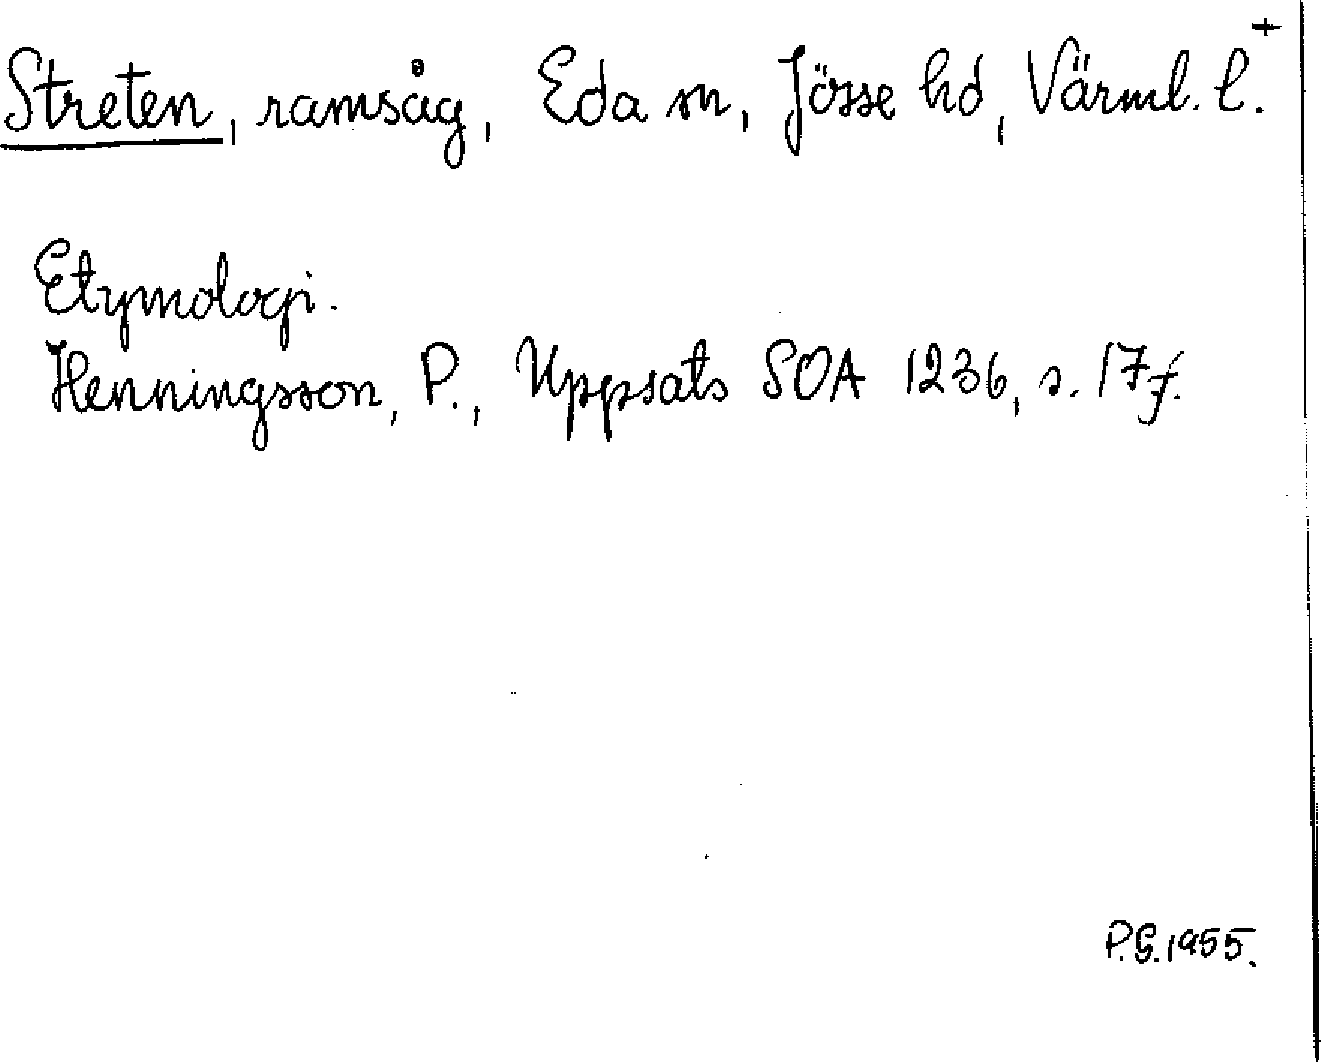 Streten, ramsåg, Eda sn, Jösse hd, Värml. l.+
Etymologi.
Henningsson, P., Uppsats SOA 1236, s. 17 f.
P.G. 1955.